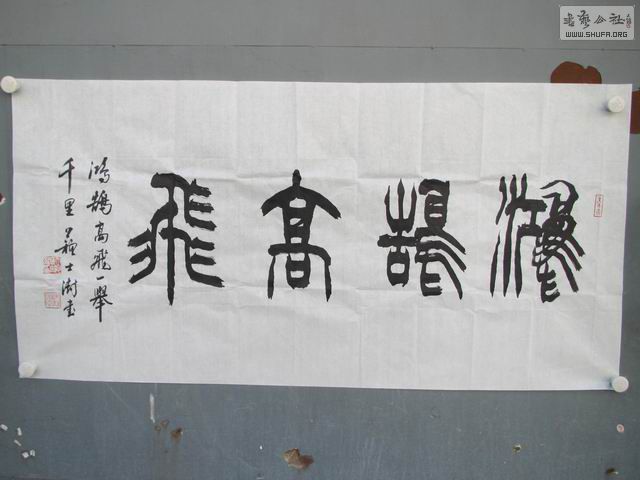 鴻鵠高飛
鴻鵠高飛一舉
千里 蘇士澍書
書藝公社
WWW.SHUFA.ORG